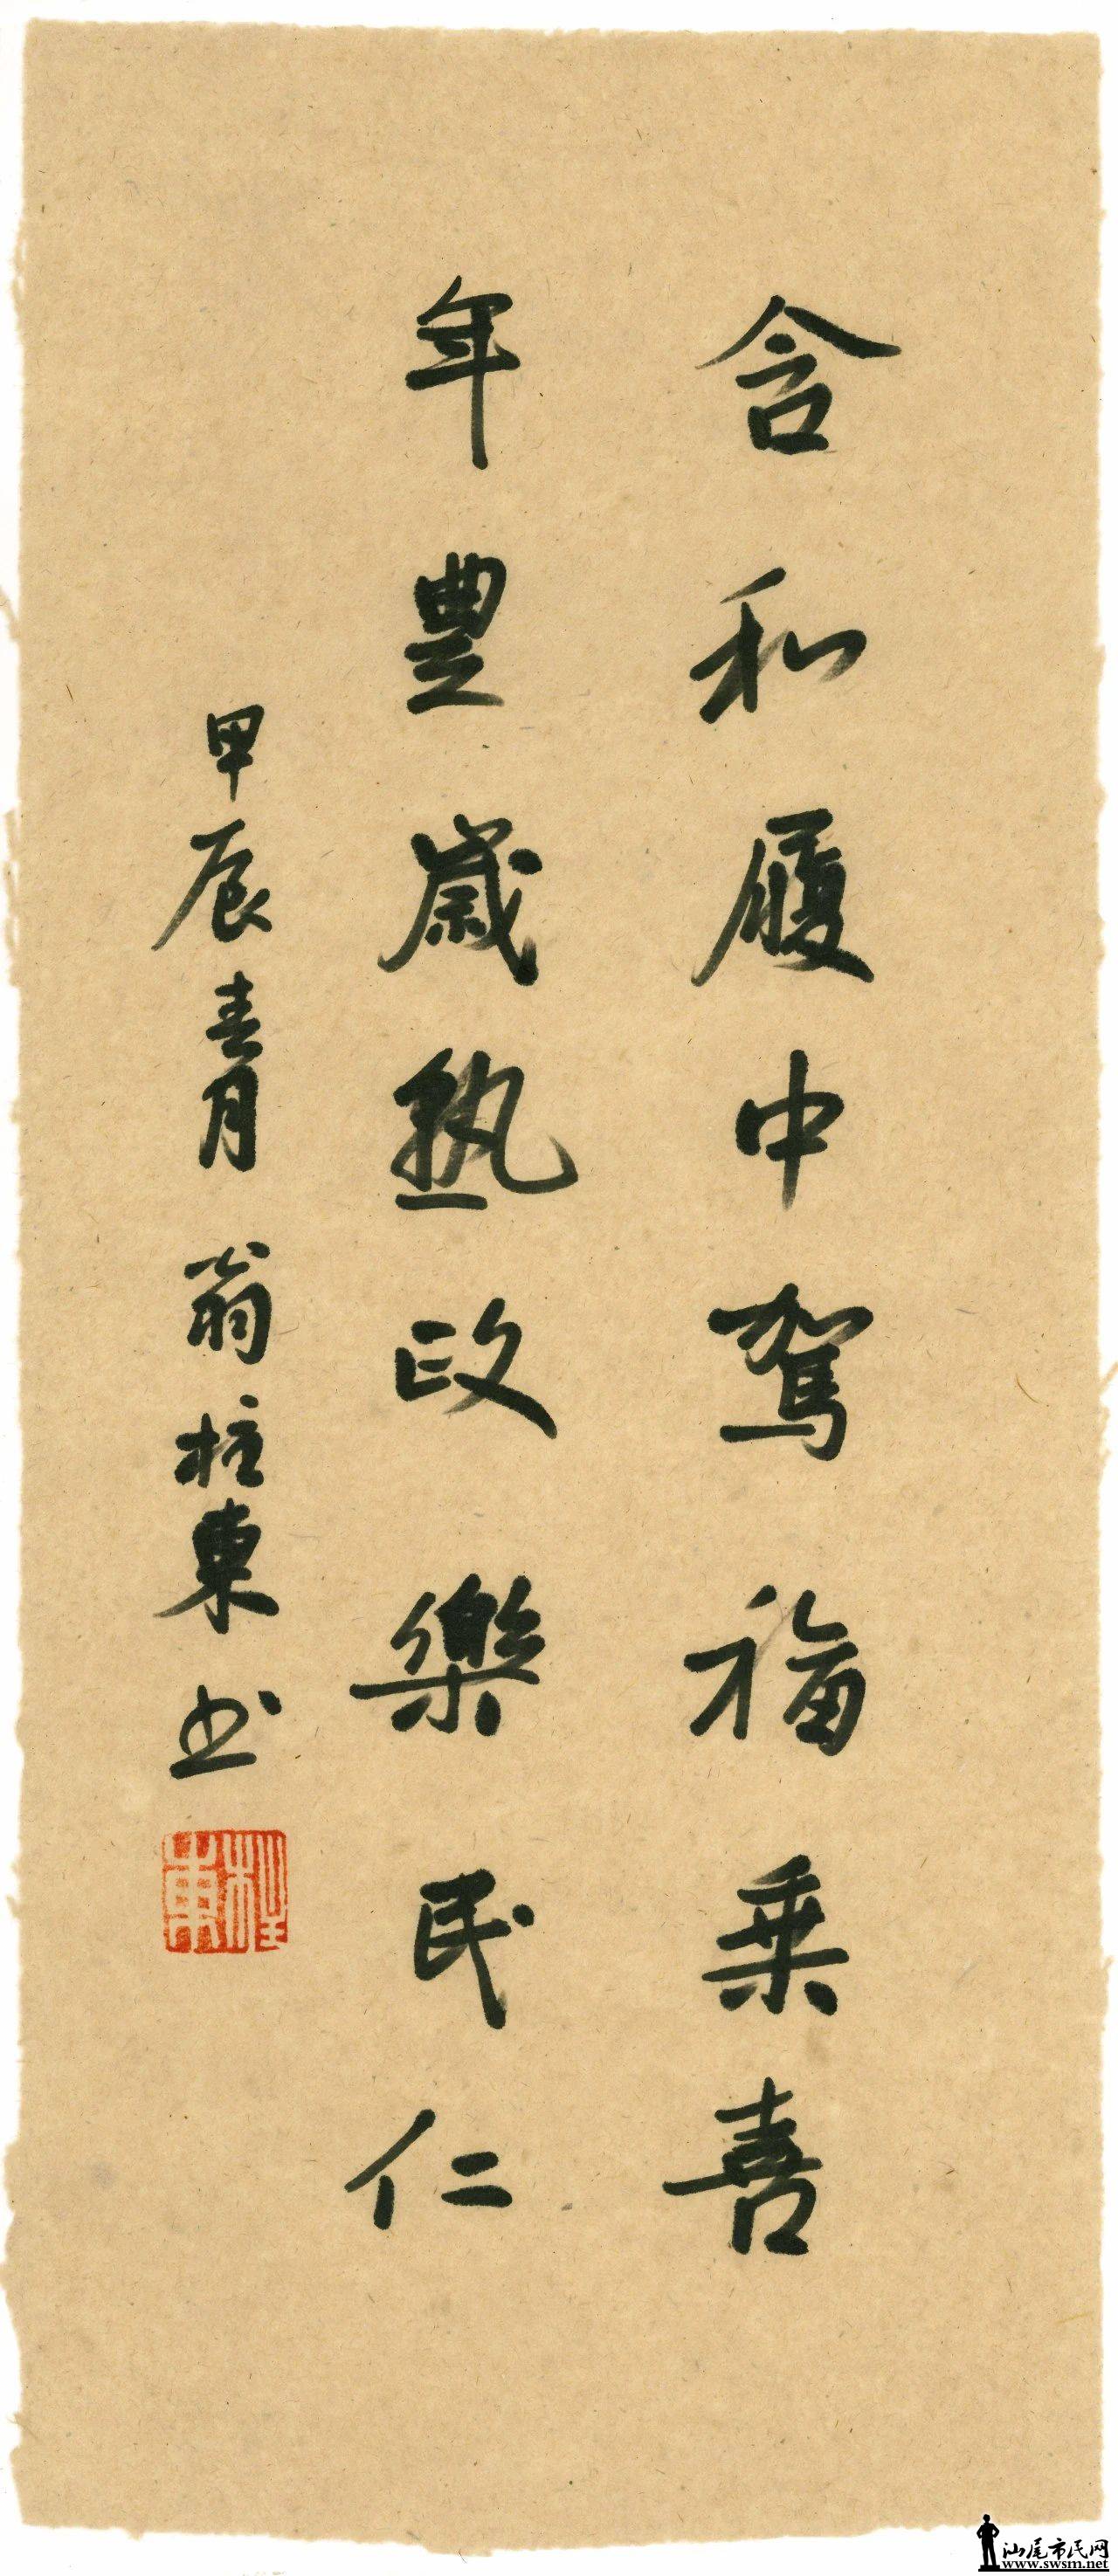 含和履中駕福乗喜
年豊歳熟政樂民仁
甲辰春月翁柱東书
柱東
汕尾市民网
www.swsm.net